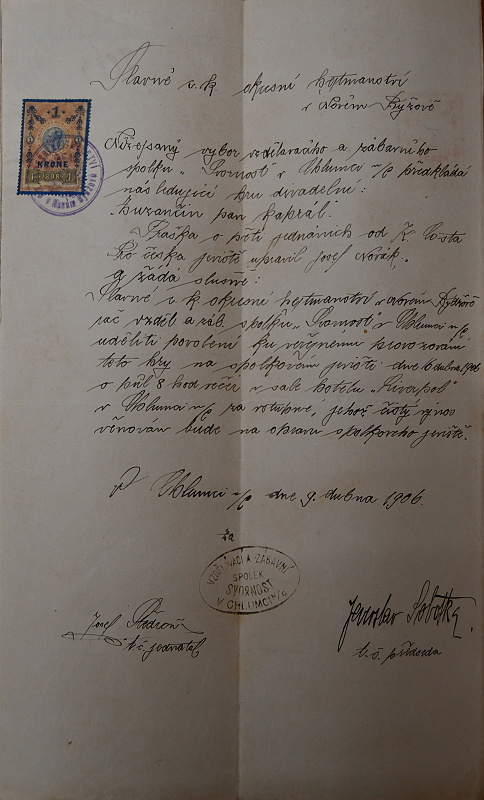 Slavné c. k. okresní hejtmanství
v Novém Bydžově
1
KRONE
1898
Nížepsaný výbor vzdělávacího a zábavního
spolku „Svornost" v Chlumci n/c předkládá
následující hru divadelní:
pan kaprál.
Fraška o pěti jednáních od K. Costa
Pro česká jeviště upravil Josef Novák.
a žádá slušně:
Slavné c. k. okresní hejtmanství v Novém Bydžově
rač vzděl. a záb. spolku „Svornost" v Chlumci n/c
uděliti povolení ku veřejnému provozování
této hry na spolkovém jevišti dne dubna 1906
o půl 8 hod večer v sále hotelu „Liverpol"
v Chlumci n/c za vstupné, jehož čistý výnos
věnován bude na opravu spolkového jeviště.
V Chlumci n/c dne 9. dubna 1906.
Za
VZDĚLÁVACÍ A ZÁBAVNÍ
SPOLEK
SVORNOST
V CHLUMCI N/C
Josef
t. č. jednatel
Jaroslav Sobotka
t. č. předseda